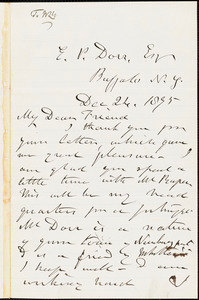 E. P. Dorr, Esq
Buffalo N. Y.
Dec 24, 1895
My Dear Friend
I thank you for
your letter, which gave
me great pleasure. I
am glad you spent a
little time with Mr
This will be my head
quarters for a
Mr Dorr is a native
of your town
is a friend of
I keep well - and
working hard